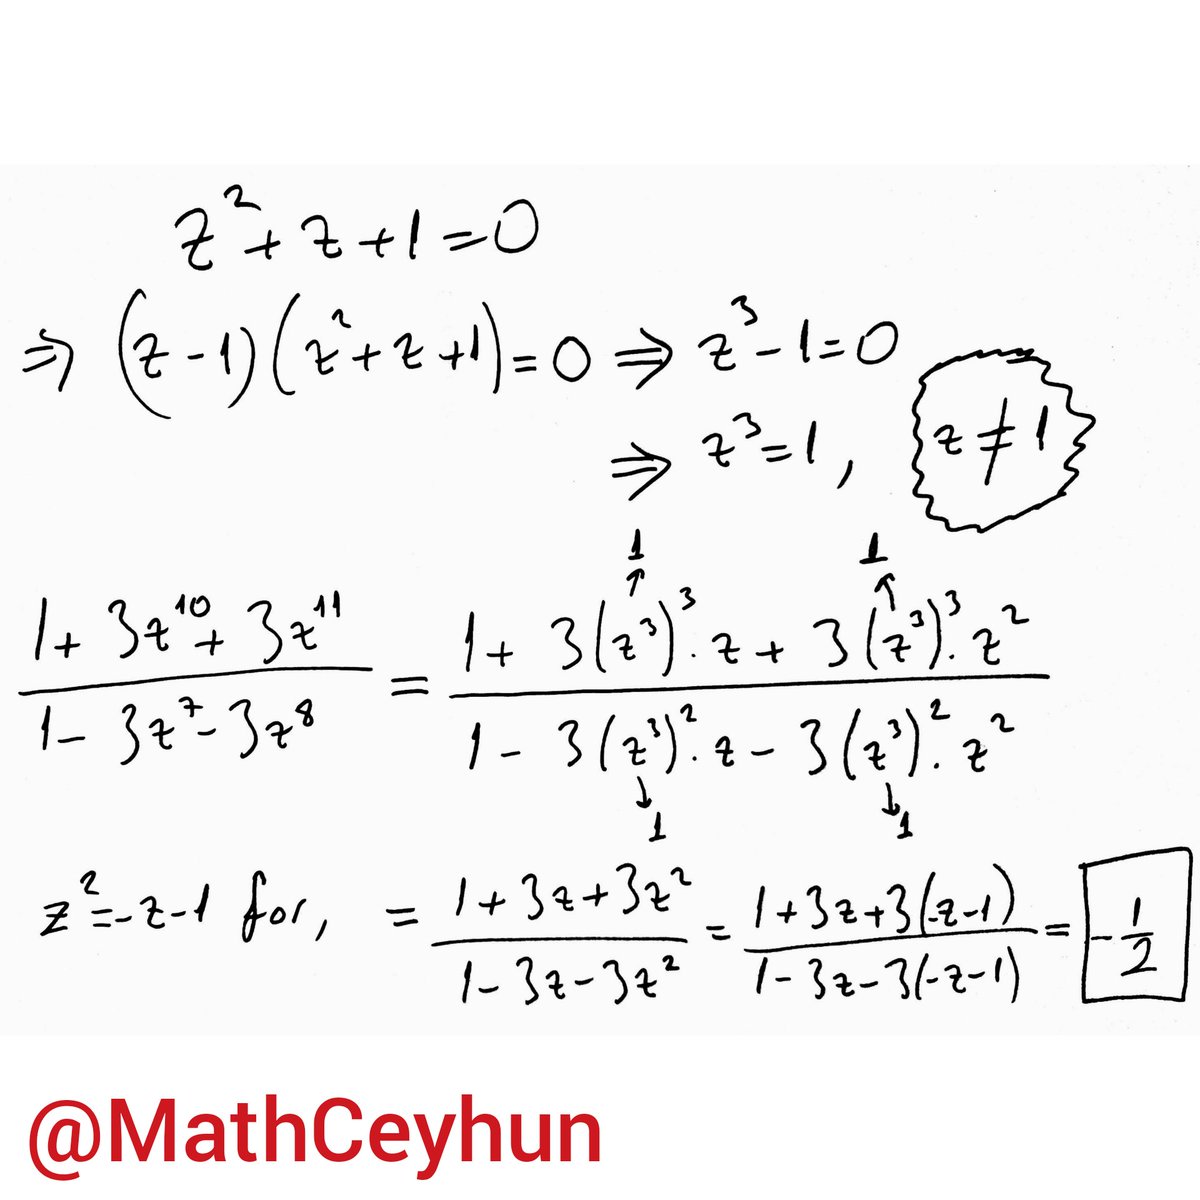 z²+z+1=0
⇒ (z-1)(z²+z+1)=0 ⇒ z³-1=0
⇒ z³=1, z≠1
1 1
(1+3z¹⁰+3z¹¹)/(1-3z⁷-3z⁸) = (1+3(z³)³.z+3(z³)³.z²)/(1-3(z³)².z-3(z³)².z²)
1 1
z²=-z-1 for, = (1+3z+3z²)/(1-3z-3z²) = (1+3z+3(-z-1))/(1-3z-3(-z-1)) = -1/2
@MathCeyhun